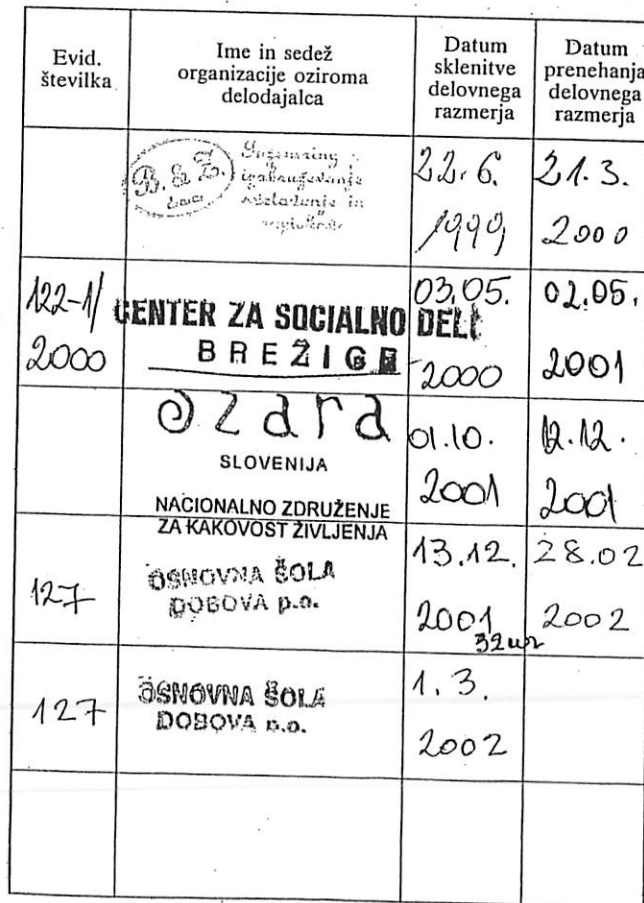 Evid.
številka
Ime in sedež
organizacije oziroma
delodajalca
Datum
sklenitve
delovnega
razmerja
Datum
prenehanja
delovnega
razmerja
B. & Z.
22. 6.
1999
21. 3.
2000
122-1/
2000
CENTER ZA SOCIALNO DEL
BREŽICE
03.05.
2000
02.05.
2001
Ozara
SLOVENIJA
NACIONALNO ZDRUŽENJE
ZA KAKOVOST ŽIVLJENJA
01.10.
2001
12.12.
2001
127
OSNOVNA ŠOLA
DOBOVA p.o.
13.12.
2001
32 ur
28.02
2002
127
OSNOVNA ŠOLA
DOBOVA p.o.
1. 3.
2002